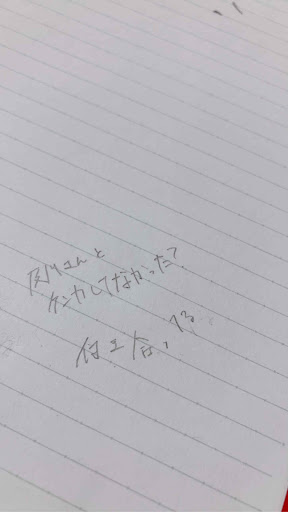 及川さんと
ケンカしてなかった?
付き合ってる